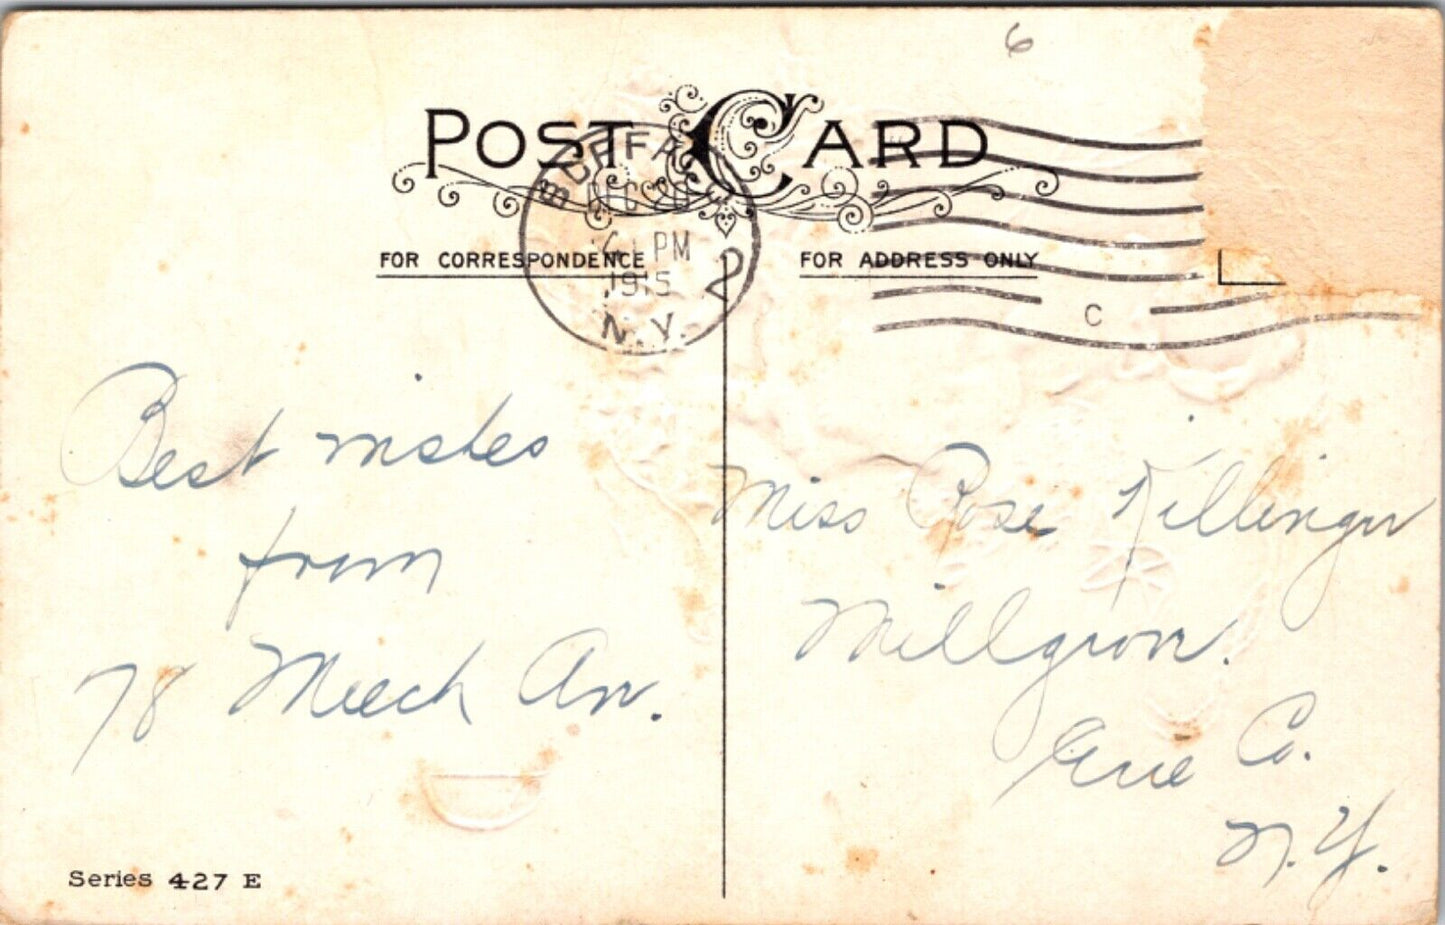 6
POST CARD
BUFFALO
DEC 20
PM
1915
N.Y.
2
C
FOR CORRESPONDENCE
FOR ADDRESS ONLY
Best wishes
from
78 Meech Av.
Miss Rose Killinger
Millgrove.
Erie Co.
N.Y.
Series 427 E